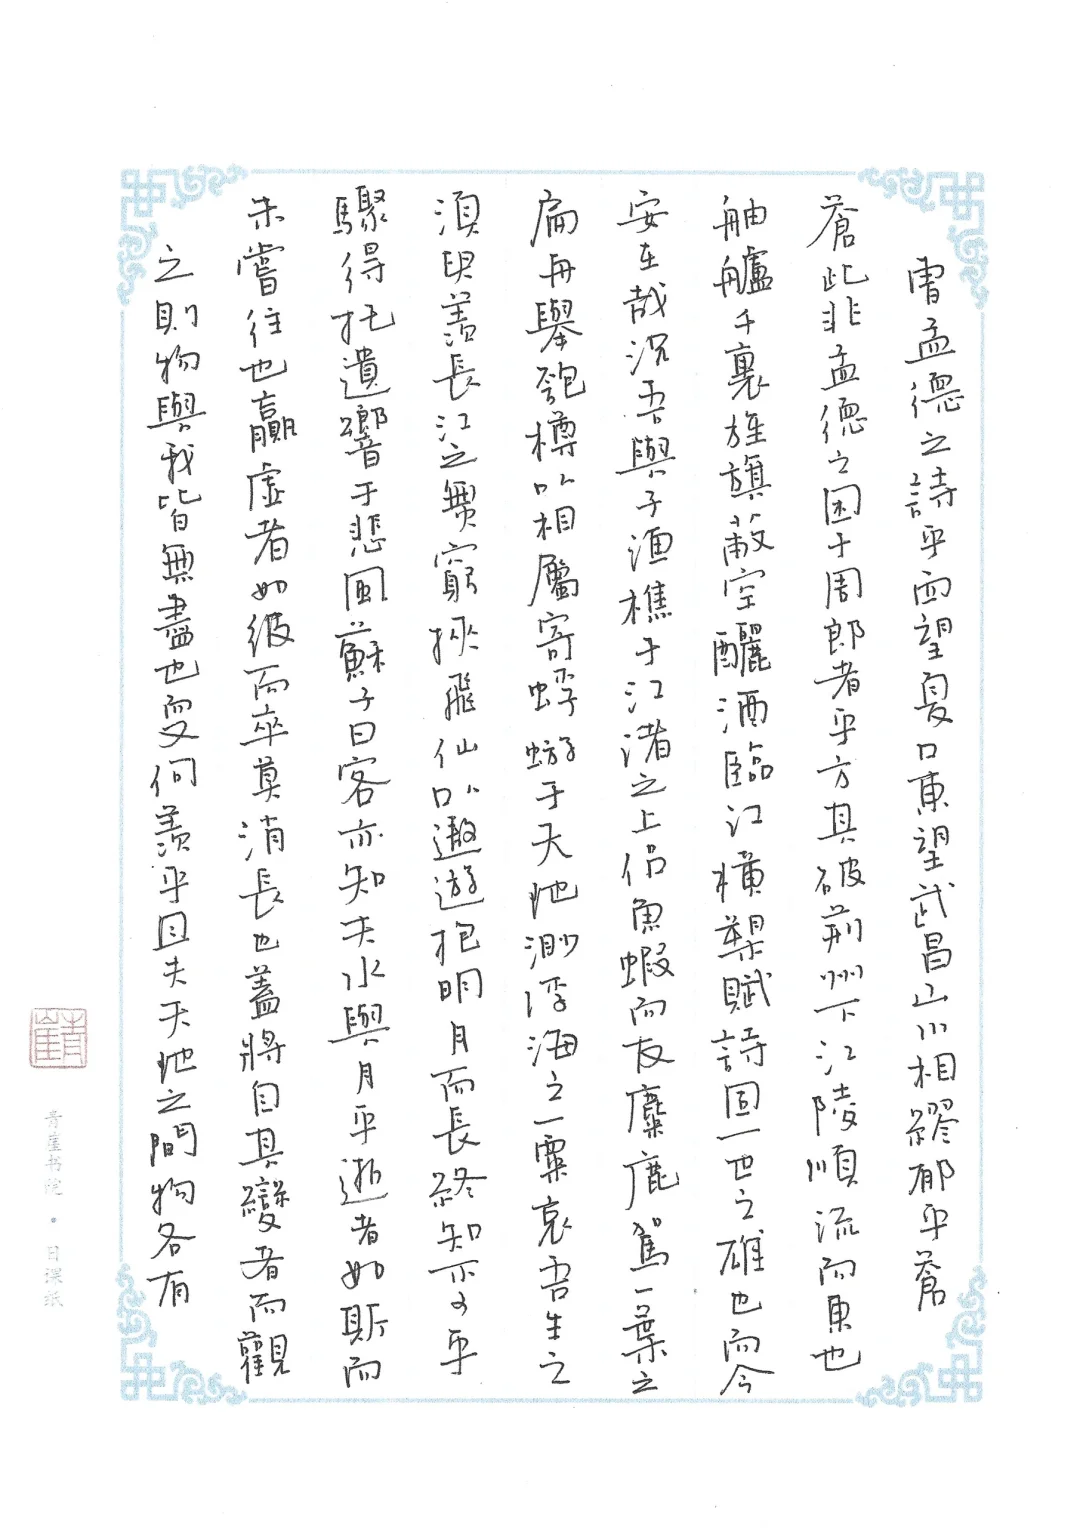 曹孟德之詩乎西望夏口東望武昌山川相繆郁乎蒼
蒼此非孟德之困于周郎者乎方其破荊州下江陵順流而東也
舳艫千裏旌旗蔽空釃酒臨江橫槊賦詩固一世之雄也而今
安在哉況吾與子漁樵于江渚之上侶魚蝦而友麋鹿駕一葉之
扁舟舉匏樽以相屬寄蜉蝣于天地渺浮海之一粟哀吾生之
須臾羨長江之無窮挾飛仙以遨遊抱明月而長終知不可乎
驟得托遺響于悲風蘇子曰客亦知夫水與月乎逝者如斯而
未嘗往也贏虛者如彼而卒莫消長也蓋將自其變者而觀
之則物與我皆無盡也而又何羨乎且夫天地之間物各有
青崖书院·日课纸